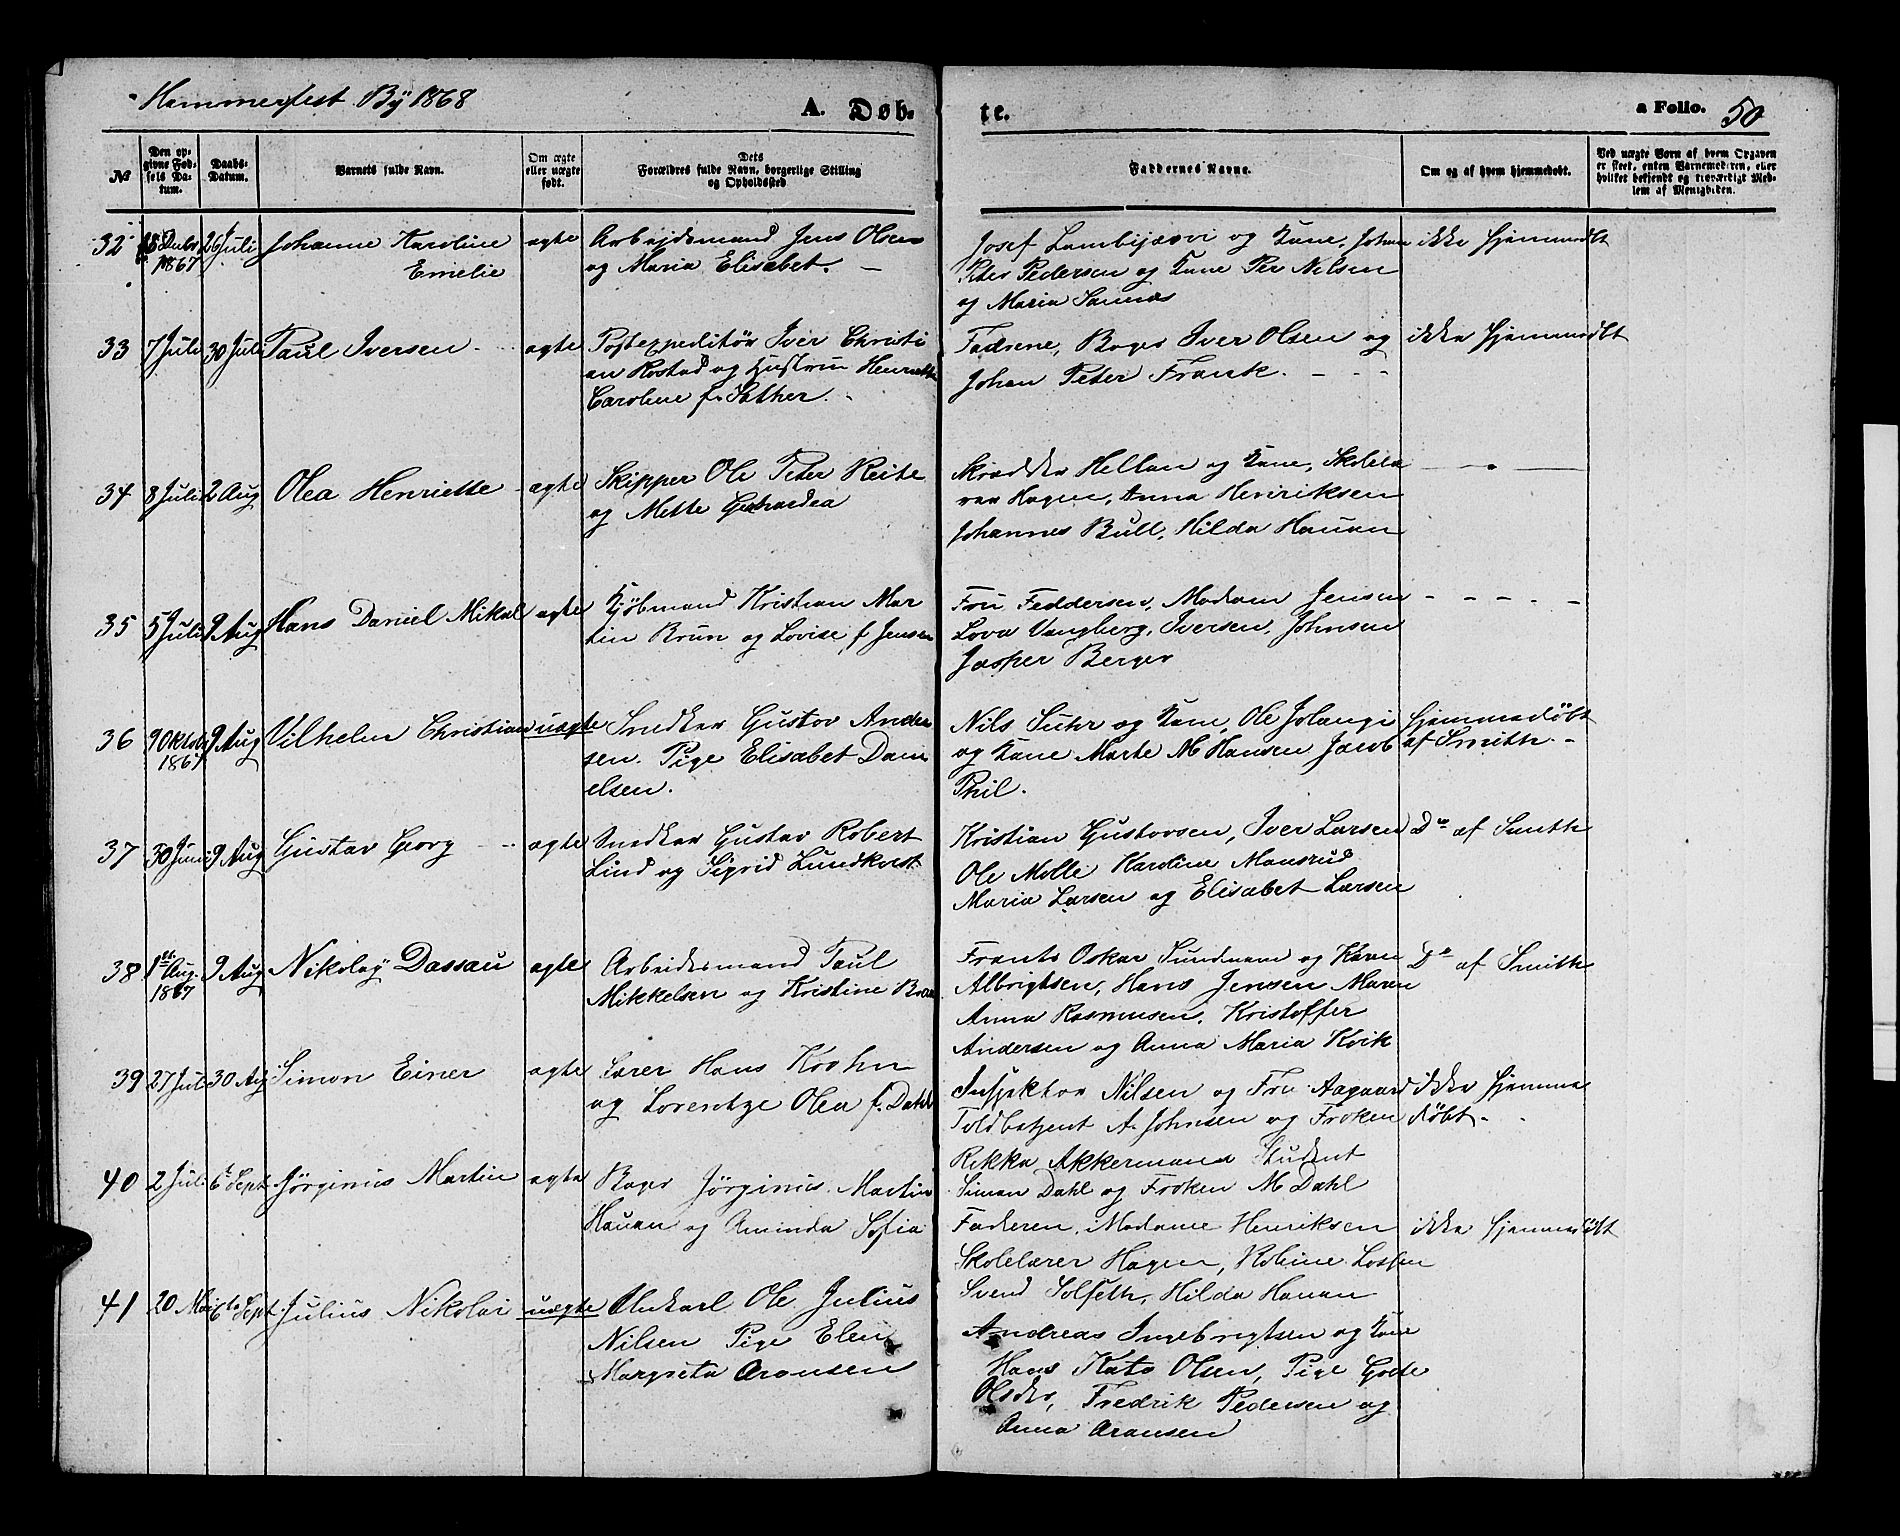 Hammerfest By 1868
A. Døb-
te.
a Folio. 50
No
Den op-
givne Fød-
sels Da-
tum.
Daabs-
Datum.
Barnets fulde Navn.
Om ægte
eller uægte
født.
Dets
Forældres fulde Navn, borgerlige Stilling
og Opholdssted
Faddernes Navne.
Om og af hvem hjemmedøbt.
Ved uægte Børn af hvem Opgaven
er skeet, enten Barnemoderen, eller
hvilket bekjendt og troværdigt Med-
lem af Menigheden.
32 Decbr 1867 26 Juli Johanne Karoline
Emelie
ægte
Arbejdsmand Jens Olsen
og Maria Elisabet. —
Josef Lambijærvi og Kane, Johan
Peter Pedersen og Kane Per Nilsen
og Maria Sannes
ikke hjemmedøbt
33 7 Juli 30 Juli Paul Iversen
ægte
Postexpeditør Iver Christi
an Rostad og Hustrue Henriette
Caroline f. Sather.
Fadrene, Boger Iver Olsen og
Johan Peter Frank.
ikke hjemmedøbt
34 8 Juli 2 Aug Olea Henriette
ægte
Skipper Ole Peter Reite
og Mette Gerhardea
Skrædder Hellan og Kane, Skolelæ
rer Hagen, Anna Henriksen
Johannes Bull, Hilda Hauan
— " —
35 5 Juli 9 Aug Hans Daniel Mikal
ægte
Kjøbmand Kristian Mar
tin Brun og Lovise f Jensen
Fru Feddersen, Madam Jensen
Lova Vangberg, Iversen, Johnsen
Jasper Berger
- - - - -
36 9 Oktob 1867 9 Aug Vilhelm Christian
uægte
Snedker Gustav Ander
sen. Pige Elisabet Dani
elsen.
Nils Suhr og Kane, Ole Jolangi
og Kane Marte M Hansen Jacob
Phil.
hjemmedøbt
af Smith. -
37 30 Juni 9 Aug Gustav Georg
ægte
Snedker Gustav Robert
Lind og Sigrid Lundkvist
Kristian Gustavsen, Iver Larsen
Ole Molle Karoline Mansrud
Maria Larsen og Elisabet Larsen
Do af Smith
38 1ste Aug. 1867 9 Aug Nikolay Dassau
ægte
Arbeidsmand Paul
Mikkelsen og Kristine
Frants Oskar Sundnam og Karen
Albrigtsen, Hans Jensen Maren
Anna Rasmusen, Kristoffer
Andersen og Anna Maria Kvik
Do af Smith
39 27 Juli 30 Aug Simon Einer
ægte
Lærer Hans Krohn
og Lorentze Olea f. Dahl
Inspektor Nilsen og Fru Aagaard
Toldbetjent A. Johnsen og Frøken
Rikka Akkermand Student
Simon Dahl og Frøken M Dahl
ikke hjemme
døbt.
40 2 Juli 6 Sept Jørginus Martin
ægte
Bager Jørginus Martin
Hauan og Aminda Sofia
Faderen, Madame Henriksen
Skolelærer Hagen, Robine
Svend Solseth, Hilda Hauan
ikke hjemmedøbt
41 20 Mai 6te Sept. Julius Nikolai
uægte
Ungkarl Ole Julius
Nilsen Pige Elen
Margreta Aronsen
Andreas Ingebrigtsen og Kane
Hans Kato Olsen, Pige
Fredrik Pedersen og
Anna Aronsen